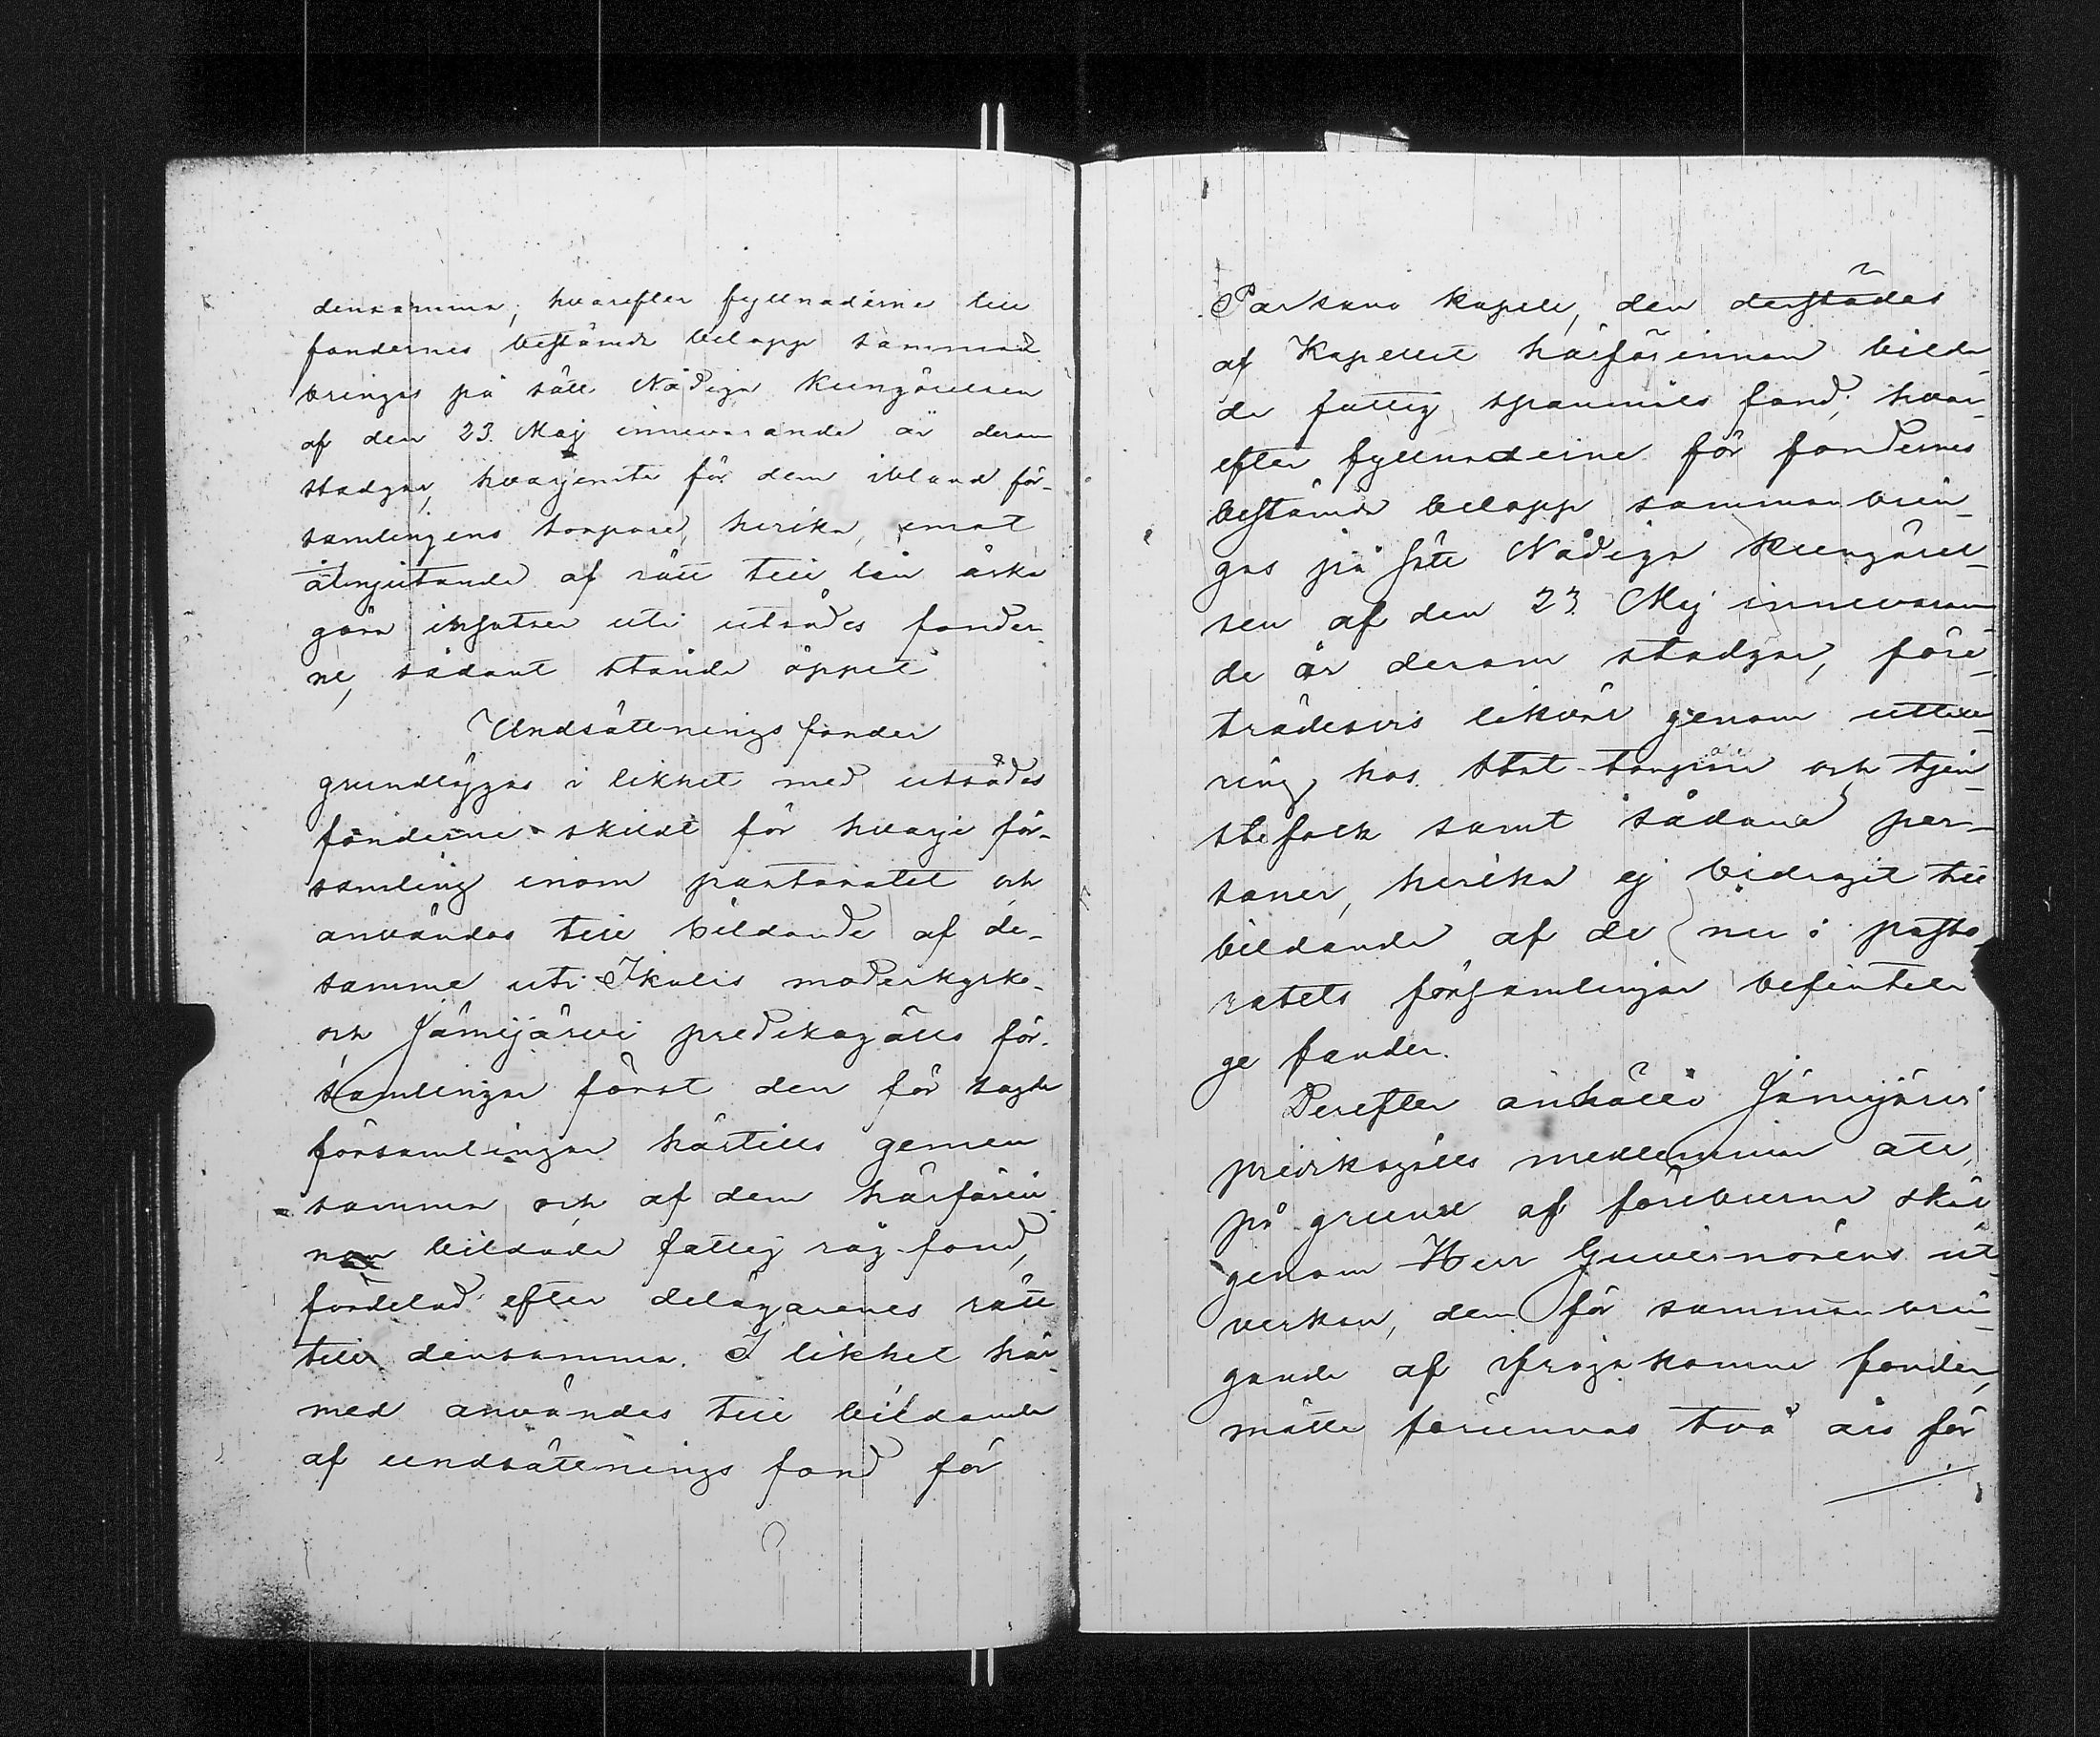 densamma, hvarefter fyllnaderne till
fondernes bestämda belopp samman
bringas på sätt Nådiga Kungörelsen
af den 23. Maj innevarande år derom
stadgar, hvarjemte för dem ibland för-
samlingens torpare, hvilka, emot
åtnjutande af rätt till lån äska
göra insatser uti utsädes fonder
ne, sådant stånde öppet
Undsättnings fonder
grundläggas i likhet med utsädes
fonderne skildt för hvarje för-
samling inom pastoratet och
användas till bildande af de-
samme uti Ikalis moderkyrko-
och Jämijärvi predikogälls för-
samlingar först den för sagde
församlingar härtills gemen
samma och af dem härförin
nan bildade fattig råg-fond,
fördelad efter delägarenes rätt
till densamma. I likhet här-
med användes till bildande
af undsättnings fond för
Parkano kapell, den derstädes
af Kapellet härförinnan bilda
de fattig spanmåls fond, hvar-
efter fyllnaderne för fondernes
bestämda belopp sammanbrin-
gas på sätt Nådiga Kungörel-
sen af den 23 Maj innevaran-
de år derom stadgar, före-
trädesvis likväl genom uttaxe-
ring hos torpare och tjen-
stefolk samt sådana per-
soner, hvilka ej bidragit till
bildande af de nu i pasto-
ratets församlingar befintli-
ge fonder.
Derefter anhöllo Jämijärvi
predikogälls medlemmar att,
på grund af föreburna skäl
genom Herr Guvernörens ut-
verkan, dem för sammanbrin-
gande af ifrågakomne fonder,
måtte förunnas två års för